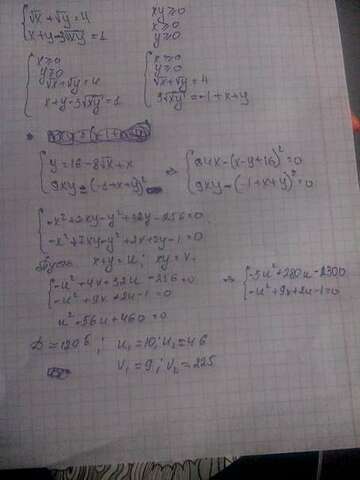 {√x + √y = 4
{x + y - 3√xy = 1
xy ≥ 0
x ≥ 0
y ≥ 0
{x ≥ 0
y ≥ 0
√x + √y = 4
x + y - 3√xy = 1
{x ≥ 0
y ≥ 0
√x + √y = 4
3√xy = -1 + x + y
{y = 16 - 8√x + x
{9xy = (-1 + x + y)²
⇒ {64x - (x - y + 16)² = 0
{9xy - (-1 + x + y)² = 0
{-x² + 2xy - y² + 32y - 256 = 0
{-x² + 7xy - y² + 2x + 2y - 1 = 0
Пусть x + y = u; xy = v.
{-u² + 4v + 32u - 256 = 0
{-u² + 9v + 2u - 1 = 0
⇒ {-5u² + 280u - 2300
{-u² + 9v + 2u - 1 = 0
u² - 56u + 460 = 0
D = 1296; u₁ = 10; u₂ = 46
v₁ = 9; v₂ = 225